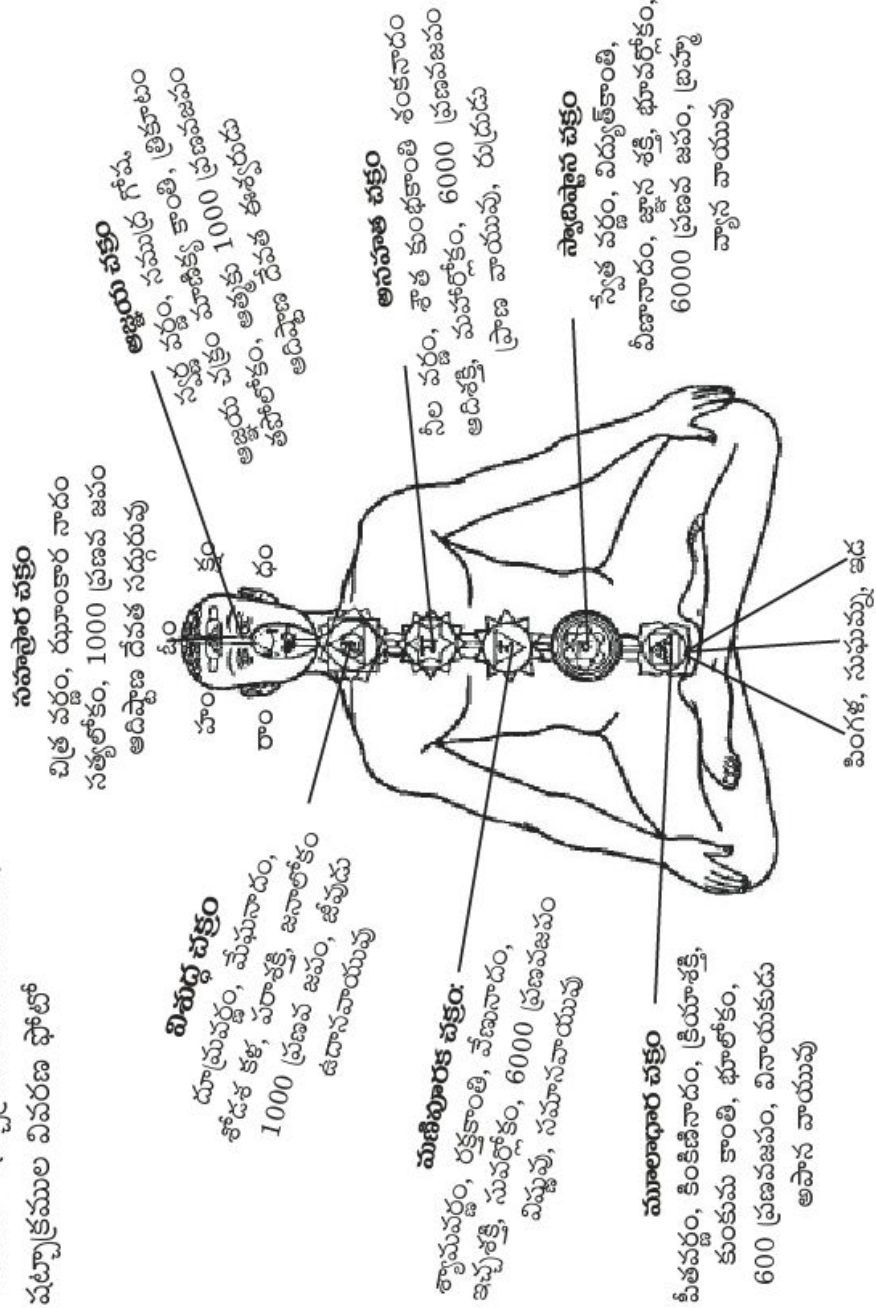 షట్చక్రముల వివరణ ఫోటో
సహస్రార చక్రం
చిత్ర వర్ణం, ఝూంకార నాదం
సత్యలోకం, 1000 ప్రణవ జపం
ఆదిష్టాణ దేవత సద్గురువు
ఆజ్ఞయ చక్రం
స్వర్ణ వర్ణం, సముద్ర గోష,
ఆజ్ఞయ చక్రం మాణిక్య కాంతి, త్రికూటం
తపోలోకం, ఆత్మకు 1000 ప్రణవజపం
ఆదిష్టాణ దేవత ఈశ్వరుడు
ఓం
హం
క్షం
రాం
ఢం
విశుద్ధ చక్రం
దూమ్రవర్ణం, మేఘనాదం,
శోడశ కళ, పరాశక్తి, జనాలోకం
1000 ప్రణవ జపం, జీవుడు
ఉదానవాయువు
అనహత చక్రం
నీల వర్ణం, శాత కుంభకాంతి శంకనాదం
ఆదిశక్తి, మహర్లోకం, 6000 ప్రణవజపం
ప్రాణ వాయువు, రుద్రుడు
మణిపూరక చక్రం:
శ్యామవర్ణం, రక్తకాంతి, వేణునాదం,
ఇచ్ఛాశక్తి, సువర్లోకం, 6000 ప్రణవజపం
విష్ణువు, సమానవాయువు
స్వాదిష్టాన చక్రం
స్వేత వర్ణం, విద్యుత్‌కాంతి,
వీణానాదం, జ్ఞాన శక్తి, భూవర్లోకం,
6000 ప్రణవ జపం, బ్రహ్మ
వ్యాన వాయువు
మూలాధార చక్రం
పీతవర్ణం, కింకిణినాదం, క్రియాశక్తి,
కుంకుమ కాంతి, భూలోకం,
600 ప్రణవజపం, వినాయకుడు
అపాన వాయువు
పింగళ, సుషుమ్న, ఇడ